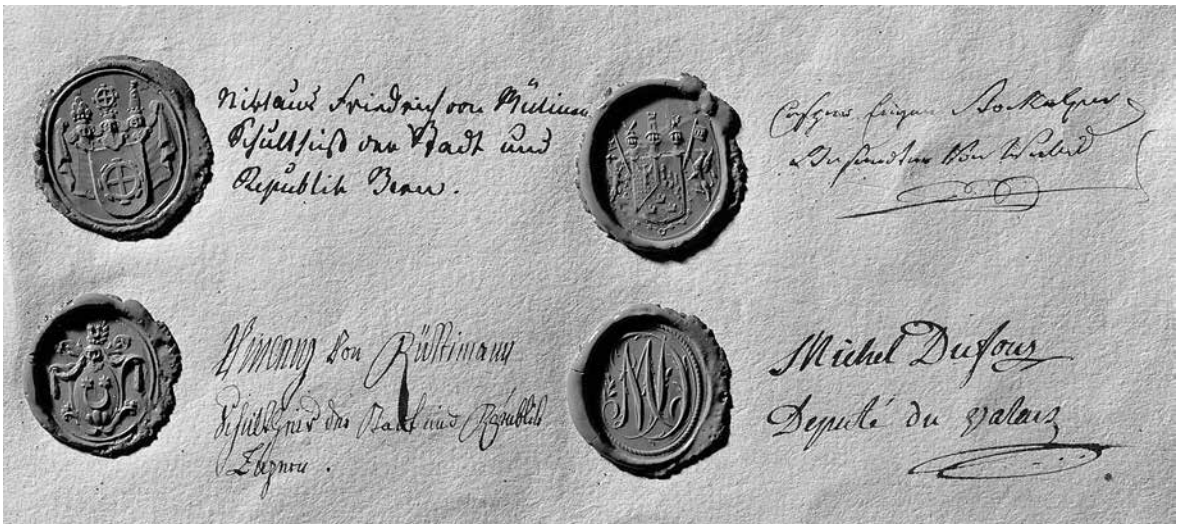 Niklaus Friedrich von Mülinen
Schultheiß der Stadt und
Republik Bern.
Caspar Eugen Stockalper
Gesandter von Wallis
Vincenz von Rüttimann
Schultheiß der Stadt und Republik
Luzern.
Michel Dufour
Deputé du Valais
MD